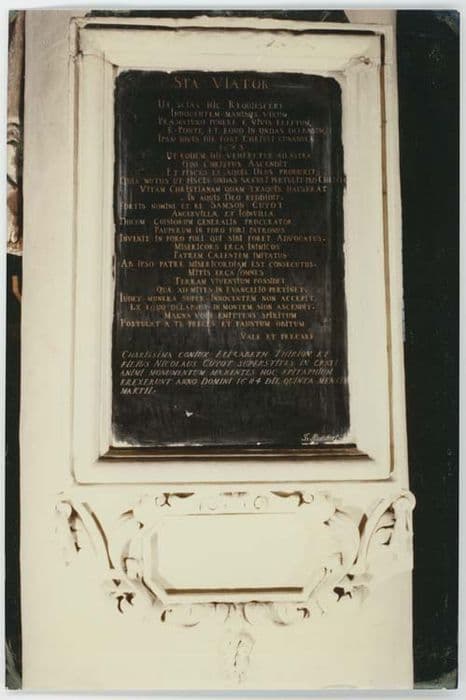 STA VIATOR
UT SCIAS HIC REQUIESCERE
INNOCENTEM MANIBUS VIRUM
PRAEMATURO FUNERE E VIVIS EREPTUM
E PONTE, ET EQUO IN UNDAS
IPSO DIVIS DIE FUIT CHRISTI
1683
UT EODEM DIE VEHERETUR AD ASTRA
QUO CHRISTUS ASCENDIT
ET PISCES EX AQUIS DEUS PRODUXIT
MUTUS UT PISCIS UNDAS SAECULI PERTULIT
VITAM CHRISTIANAM QUAM EX AQUIS HAUSERAT
IN AQUIS DEO REDDIDIT.
FORTIS NOMINE ET RE SAMSON CUYOT
ANCERVILLA ET IOINVILLA
DUCUM GENERALIS PROCURATOR
PAUPERUM IN FORO FORI PATRONUS
INVENIT IN FORO POLI QUI SIBI FORET ADVOCATUS.
MISERICORS ERGA INIMICOS
PATREM CALENTEM IMITATUS
AB IPSO PATRE MISERICORDIAM EST CONSECUTUS.
MITIS ERGA OMNES
TERRAM VIVENTIUM POSSIDET
QUAE AD MITES IN EVANGELIO PERTINET.
IUDEX MUNERA SUPER INNOCENTEM NON ACCEPIT.
EX EQUO DELAPSUS IN MONTEM SION ASCENDIT.
MAGNA VOCE EMITTENS SPIRITUM
POSTULAT A TE PRECES ET FAUSTUM OBITUM
VALE ET PRECARE
CHARISSIMA CONIUX ELIZABETH THIRION ET
FILIUS NICOLAUS CUYOT SUPERSTITES IN GRATI
ANIMI MONUMENTUM MAERENTES HOC EPITAPHIUM
EREXERUNT ANNO DOMINI 1684 DIE QUINTA MENSIS
MARTII.